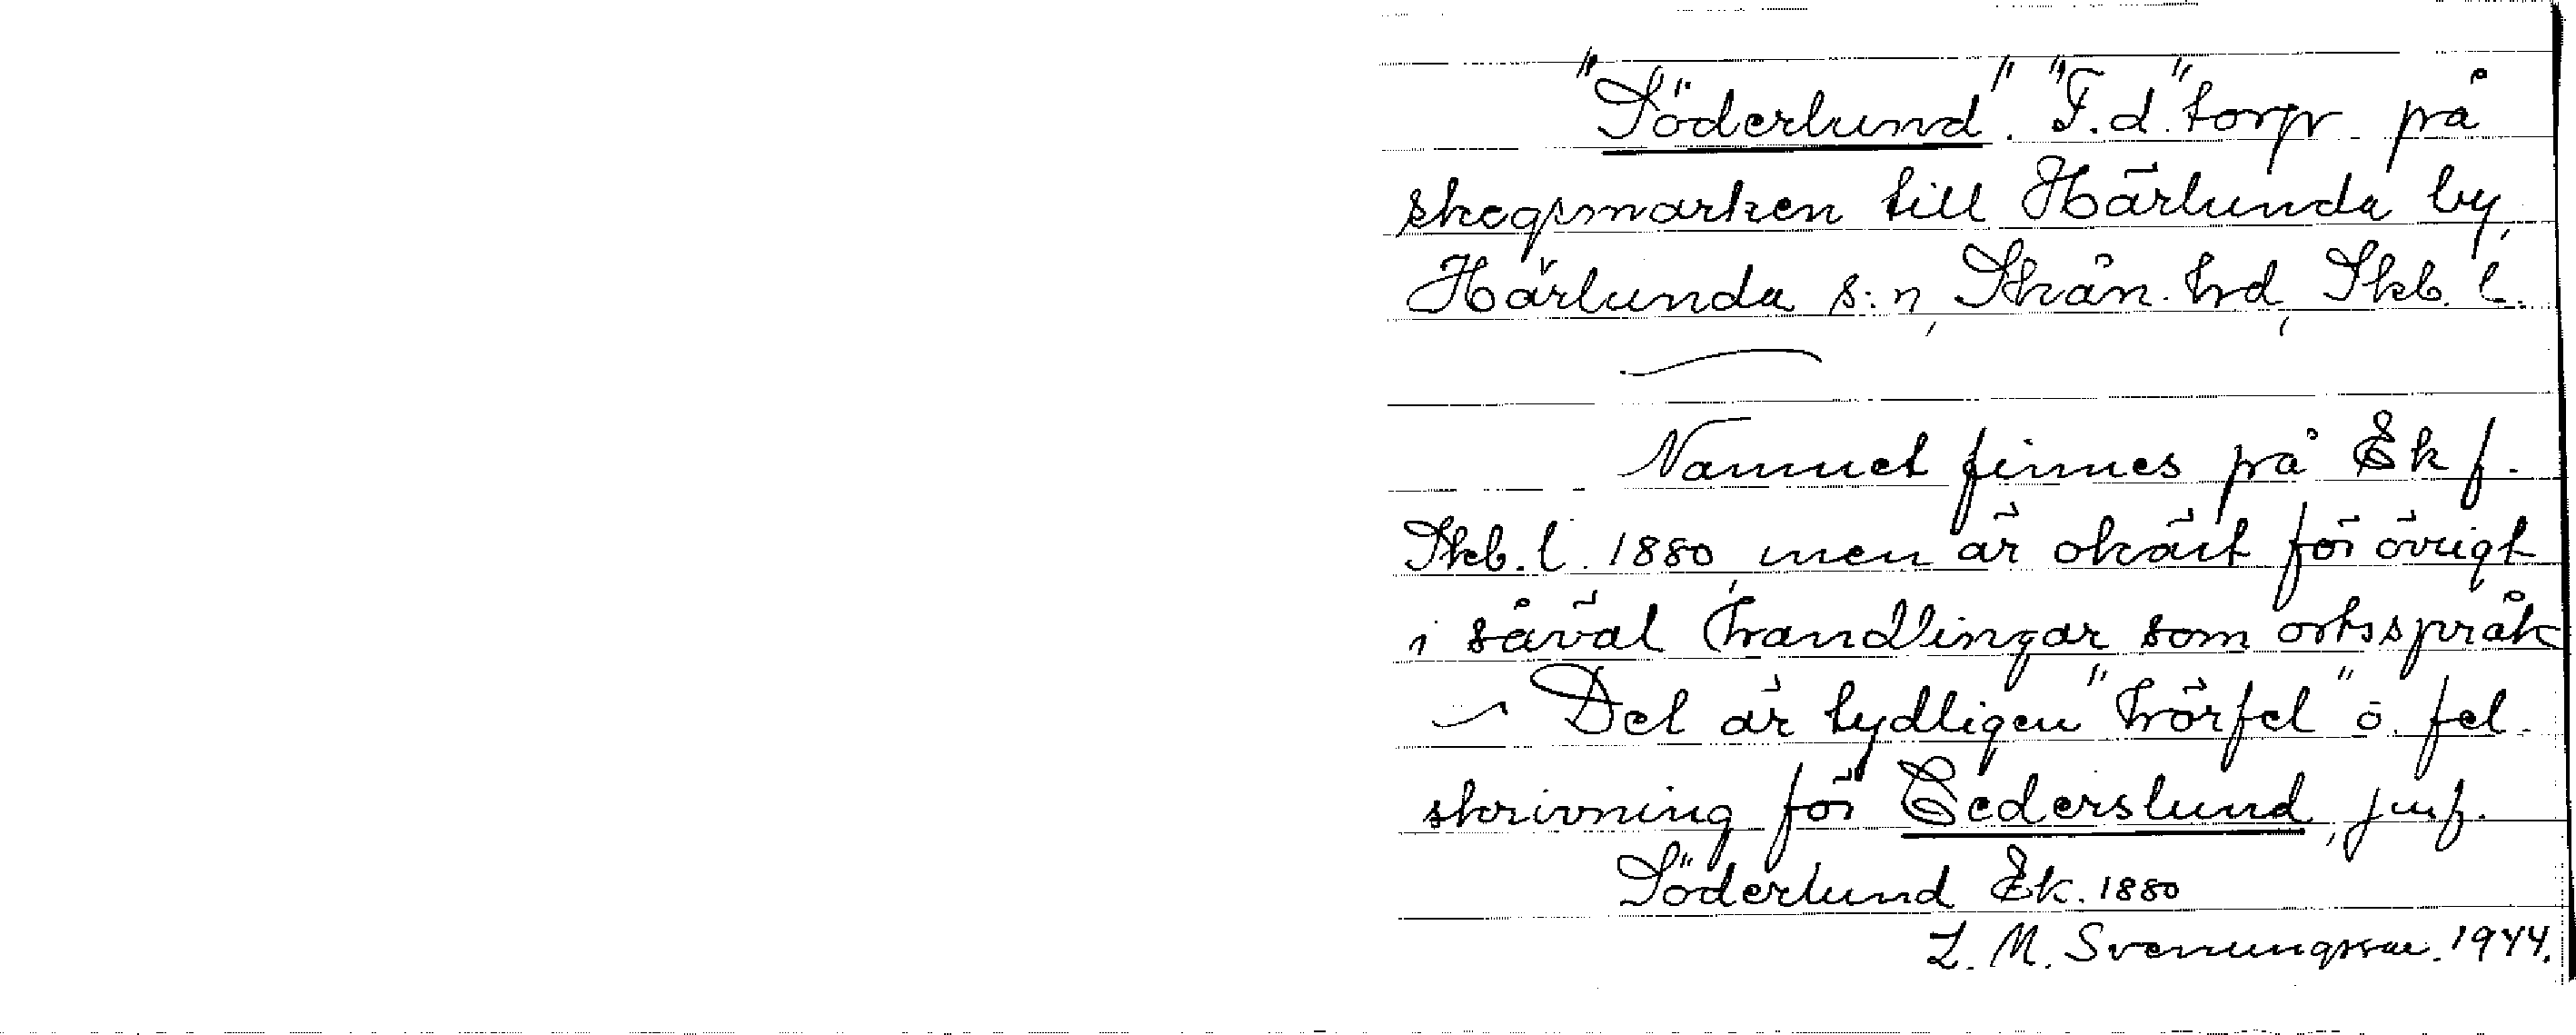 "Söderlund". "F.d." torp på
skogsmarken till Härlunda by,
Härlunda s:n, Skån. hrd, Skb. l.
Namnet finnes på Ek f.
Skb. l. 1880, men är okänt för övrigt
i såväl handlingar som ortsspråk
– Det är tydligen "hörfel" o. fel-
skrivning för Cederslund, jmf.
Söderlund Ek. 1880
L. M. Svenungsson. 1944.